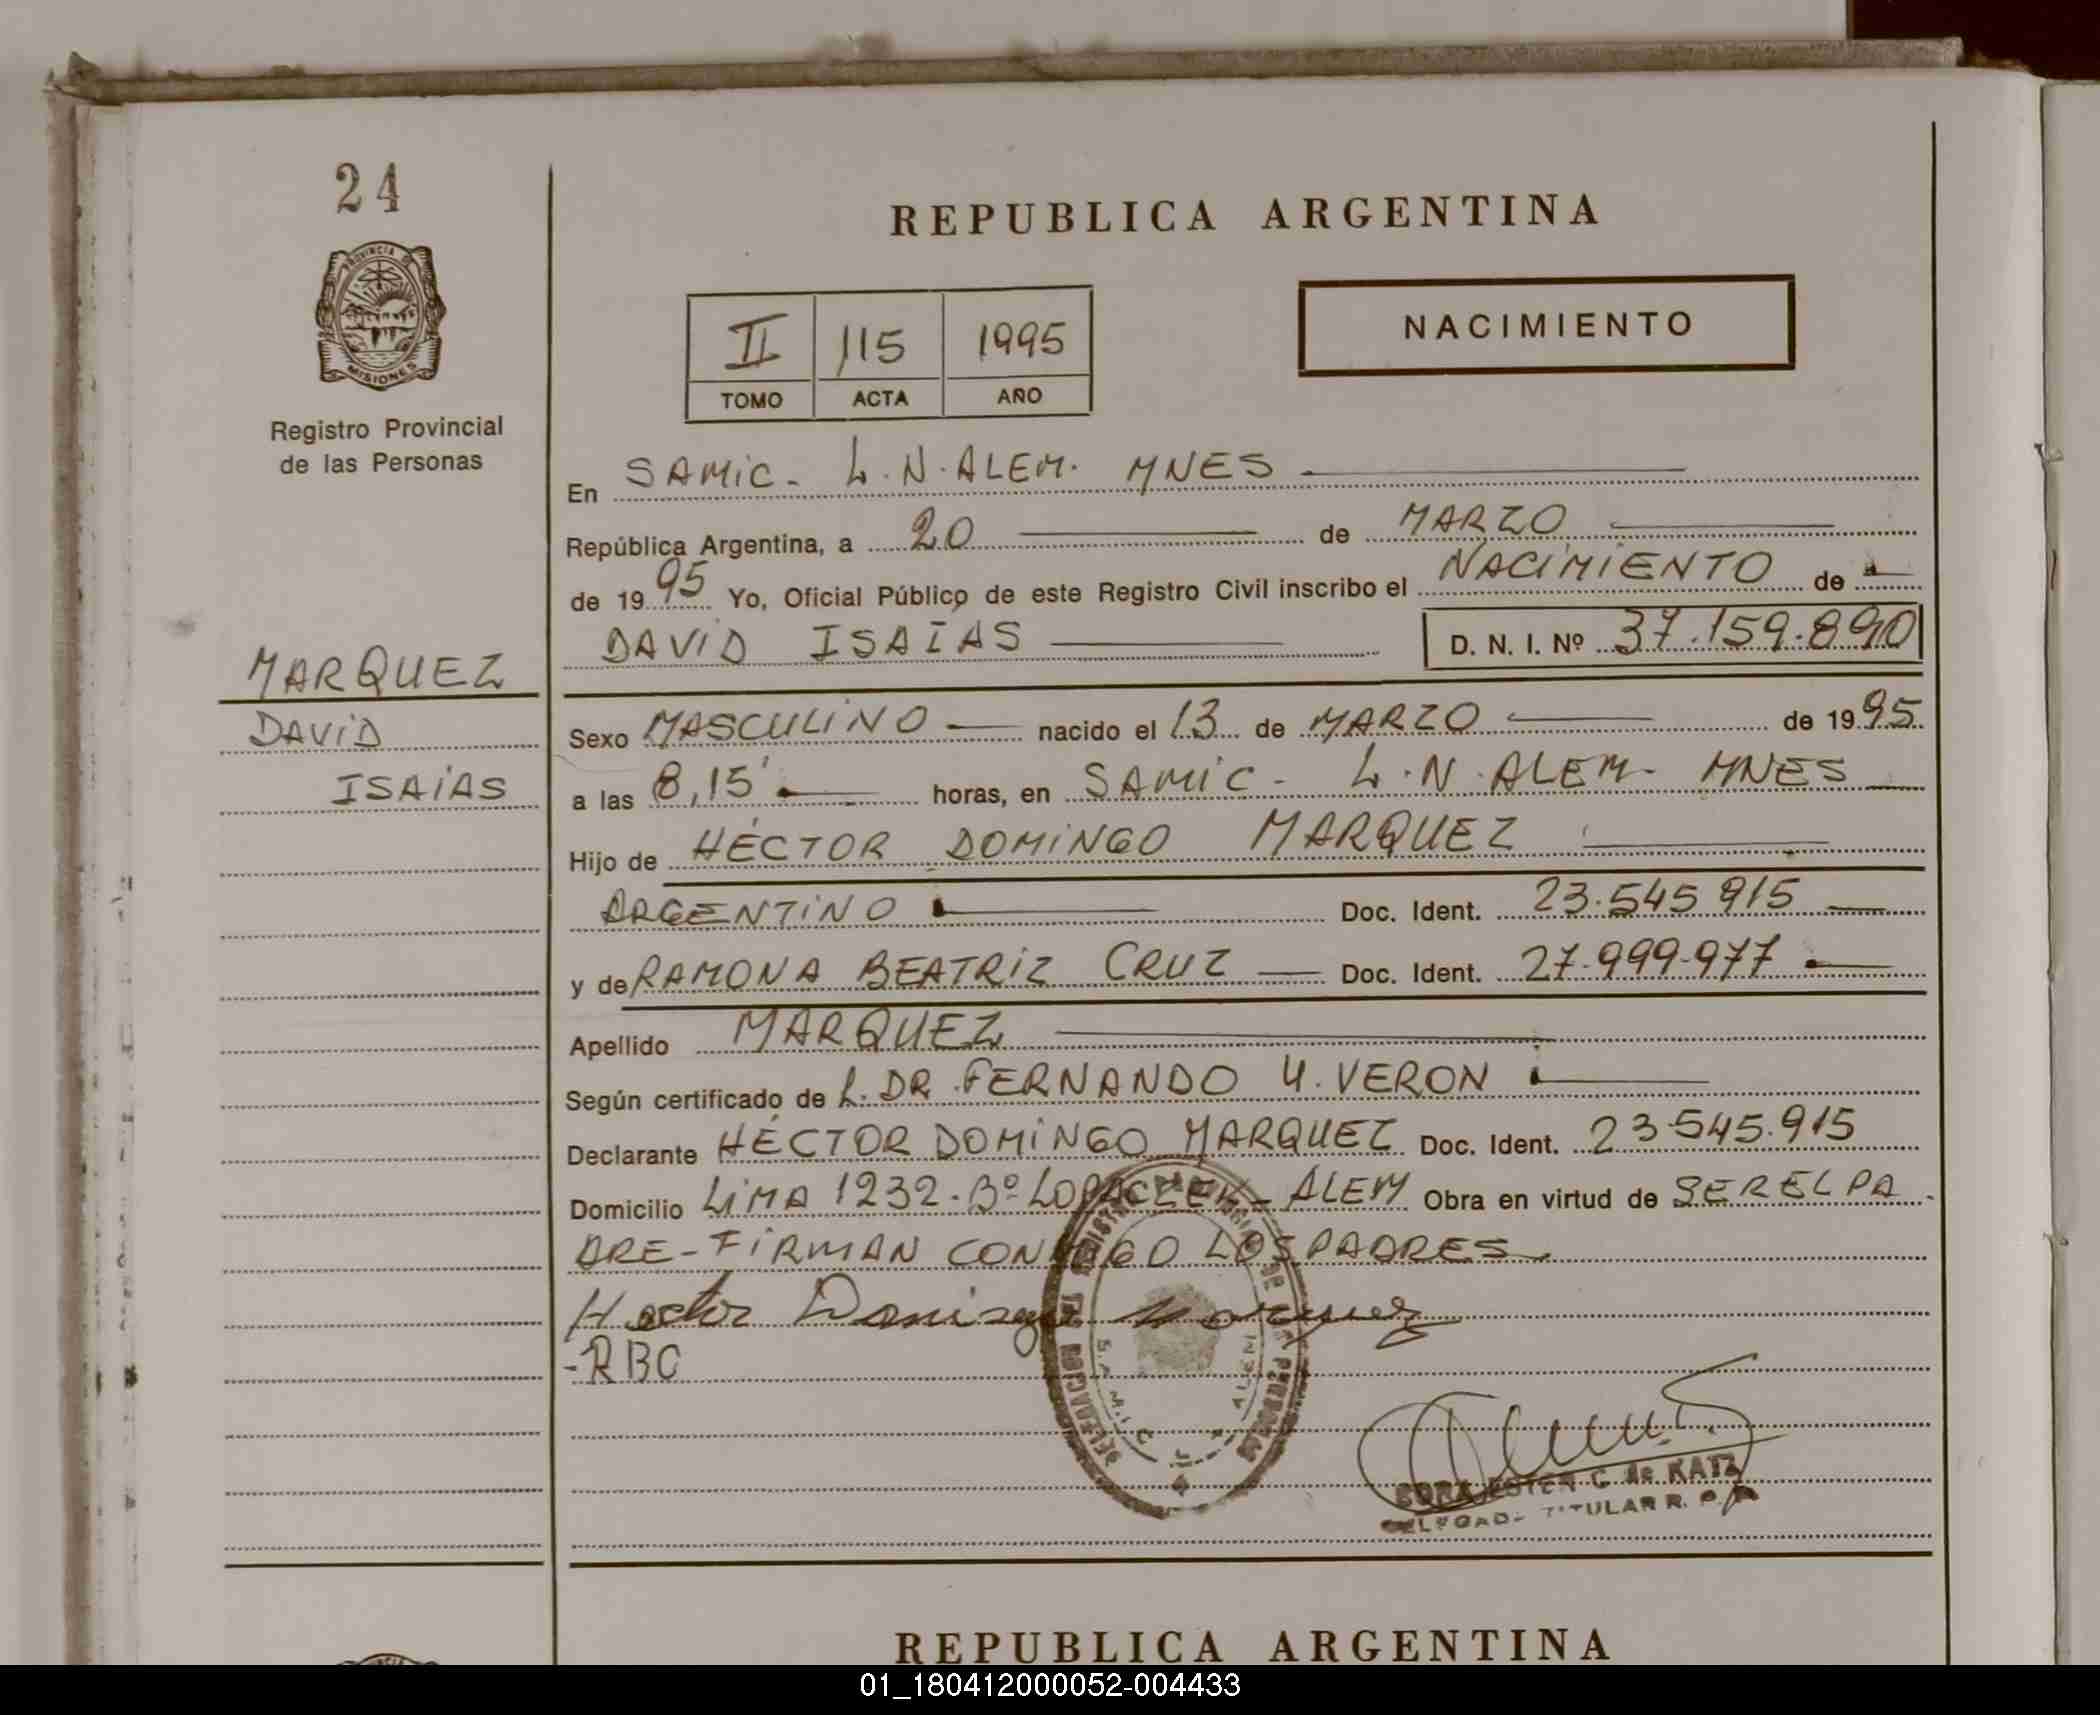 24
PROVINCIA DE
MISIONES
Registro Provincial
de las Personas
MARQUEZ
DAVID
ISAIAS
REPUBLICA ARGENTINA
II 115 1995
TOMO ACTA AÑO
NACIMIENTO
En SAMIC. L.N.ALEM. MNES
República Argentina, a 20 de MARZO
de 1995 Yo, Oficial Público de este Registro Civil inscribo el NACIMIENTO de
DAVID ISAIAS D. N. I. Nº 37.159.890
Sexo MASCULINO nacido el 13 de MARZO de 1995
a las 8,15' horas, en SAMIC - L.N.ALEM- MNES
Hijo de HÉCTOR DOMINGO MARQUEZ
ARGENTINO Doc. Ident. 23.545.915
y de RAMONA BEATRIZ CRUZ Doc. Ident. 27.999.977
Apellido MARQUEZ
Según certificado de L. DR. FERNANDO U. VERON
Declarante HÉCTOR DOMINGO MARQUEZ Doc. Ident. 23.545.915
Domicilio LIMA 1232. Bº - ALEM Obra en virtud de SER EL PA
DRE - FIRMAN CONMIGO LOS PADRES
Hector Domingo Marquez
-RBC
DORA ESTER C. de KATZ
DELEGADA TITULAR R. P.
REPUBLICA ARGENTINA
01_180412000052-004433